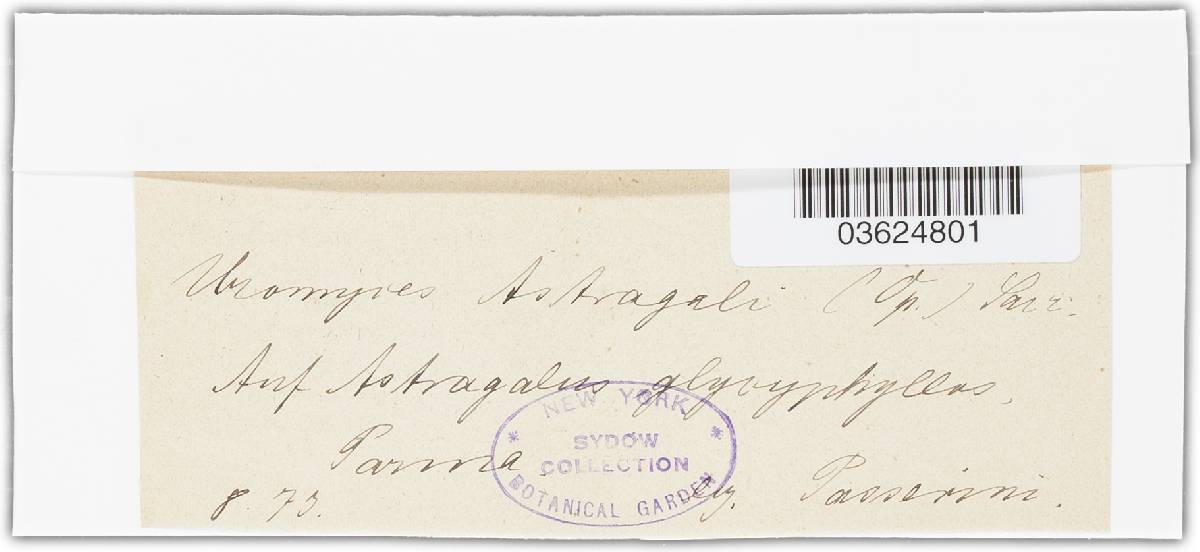 03624801
Uromyces Astragali (Op.) Sacc.
Auf Astragalus glycyphyllos.
NEW YORK
Parma
SYDOW
COLLECTION
BOTANICAL GARDEN
8. 73.
Passerini.